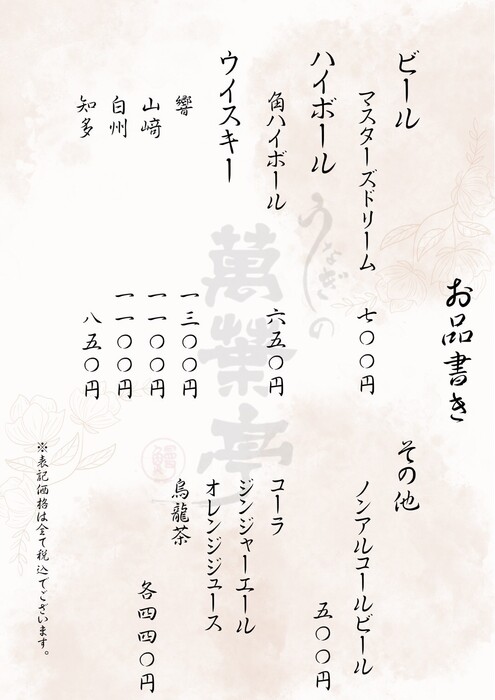 お品書き
ビール
マスターズドリーム 七〇〇円
ハイボール
角ハイボール 六五〇円
ウイスキー
響 一三〇〇円
山﨑 一一〇〇円
白州 一一〇〇円
知多 八五〇円
その他
ノンアルコールビール
五〇〇円
コーラ
ジンジャーエール
オレンジジュース
烏龍茶
各四四〇円
※表記価格は全て税込でございます。
うなぎの
萬榮亭